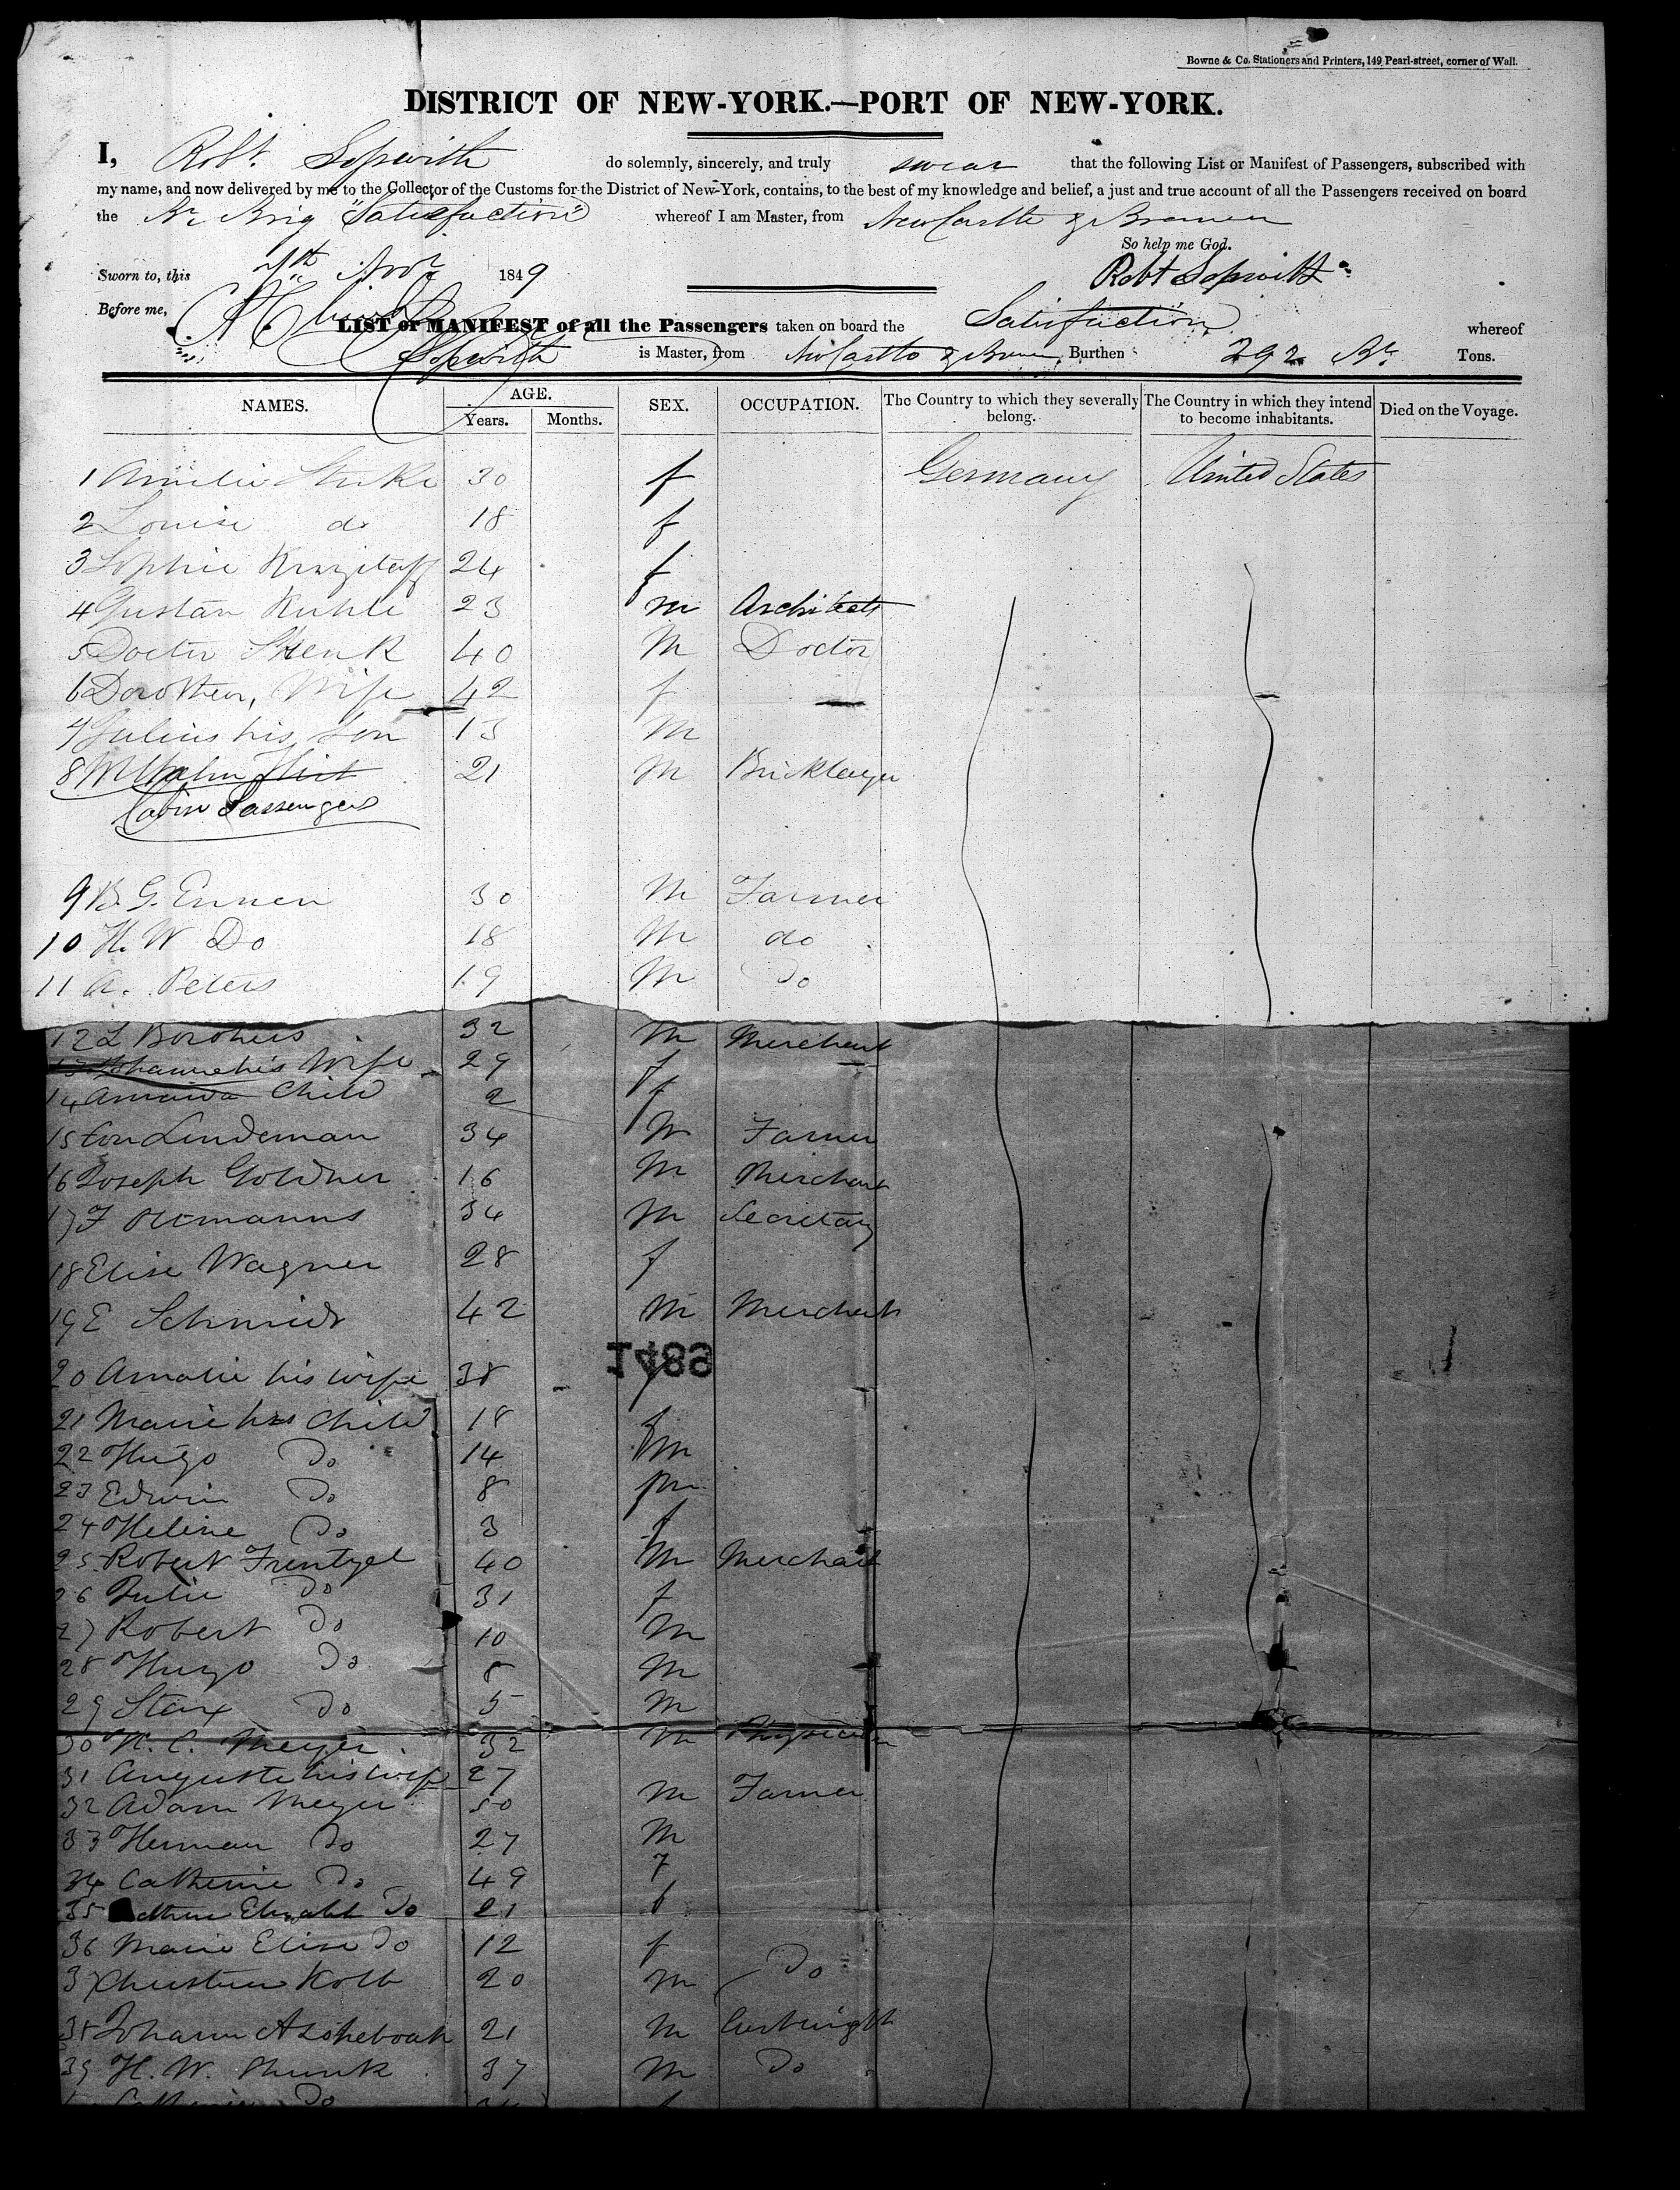 Bowne & Co. Stationers and Printers, 149 Pearl-street, corner of Wall.
DISTRICT OF NEW-YORK.—PORT OF NEW-YORK.
I, Robt. Sopwith do solemnly, sincerely, and truly swear that the following List or Manifest of Passengers, subscribed with
my name, and now delivered by me to the Collector of the Customs for the District of New-York, contains, to the best of my knowledge and belief, a just and true account of all the Passengers received on board
the Br. Brig "Satisfaction" whereof I am Master, from NewCastle & Bremen
So help me God.
Sworn to, this 7th Novr 1849 Robt Sopwith
Before me,
LIST or MANIFEST of all the Passengers taken on board the Satisfaction whereof
Sopwith is Master, from NewCastle & Bremen, Burthen 292 Tons.
NAMES. AGE. SEX. OCCUPATION. The Country to which they severally belong. The Country in which they intend to become inhabitants. Died on the Voyage.
Years. Months.
1 Amelie 30 f Germany United States
2 Louise do 18 f
3 Sophie 24 f
4 Gustav Kuhle 23 m Architect
5 Doctor Shenk 40 M Doctor
6 Dorothea, Wife 42 f
7 Julius his Son 13 M
8 Wilhelm 21 M Bricklayer
Cabin Passengers
9 B. G. Ennen 30 M Farmer
10 H. W Do 18 M do
11 A. Peters 19 M Do
12 L Borchers 32 M Merchant
13 Johanne his Wife 29 f
14 Child 2 f
15 Con Lindeman 34 M Farmer
16 Joseph Goldner 16 M Merchant
17 F Oltmanns 34 M Secretary
18 Elise Wagner 28 f
19 E Schmidt 42 M Merchant
1489
20 Amalie his wife 38 f
21 Marie his Child 18 f
22 Hugo Do 14 m
23 Edwin Do 8 m
24 Heline Do 3 f
25 Robert Frentzel 40 M Merchant
26 Julie Do 31 f
27 Robert Do 10 M
28 Hugo Do 8 M
29 Do 5 M
30 H. C. Meyer 32 M Physician
31 Auguste his wife 27
32 Adam Meyer 50 M Farmer
33 Herman Do 27 M
34 Catherine Do 49 f
35 Elizabth Do 21 f
36 Marie Elise Do 12 f
37 Christian Kolb 20 m Do
38 Johann 21 M Cartwright
39 H. W. 37 M Do
Do